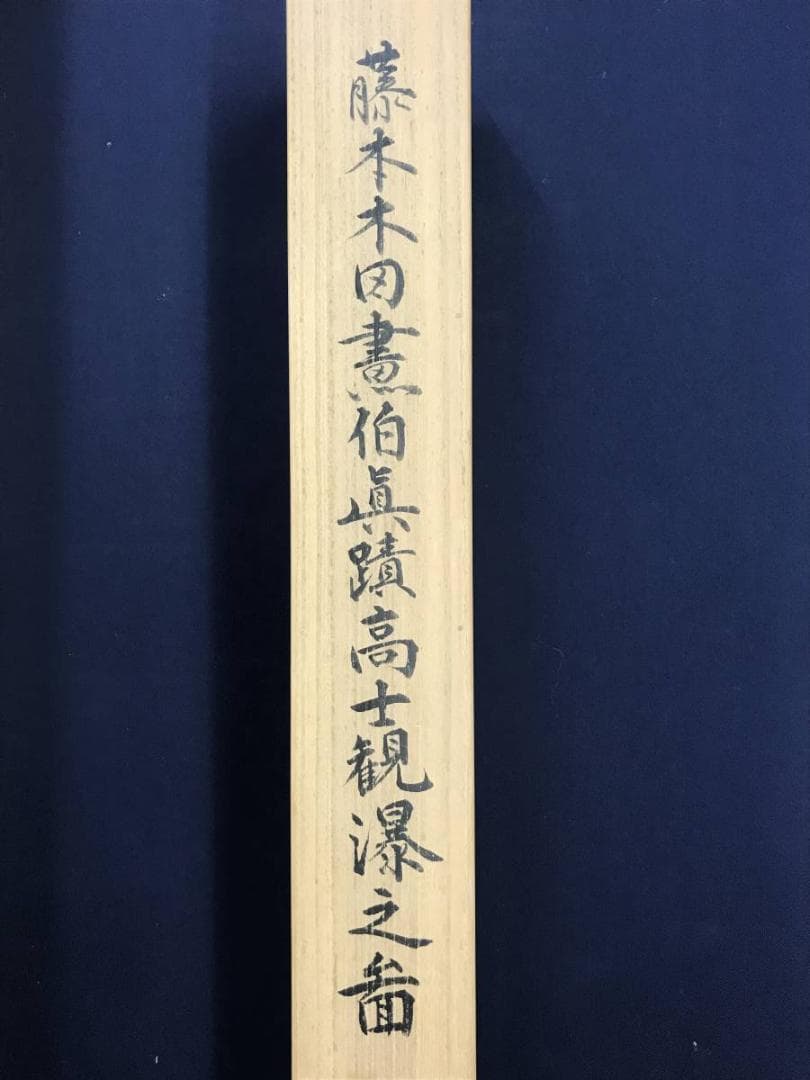 藤本木田畫伯眞蹟高士観瀑之啚